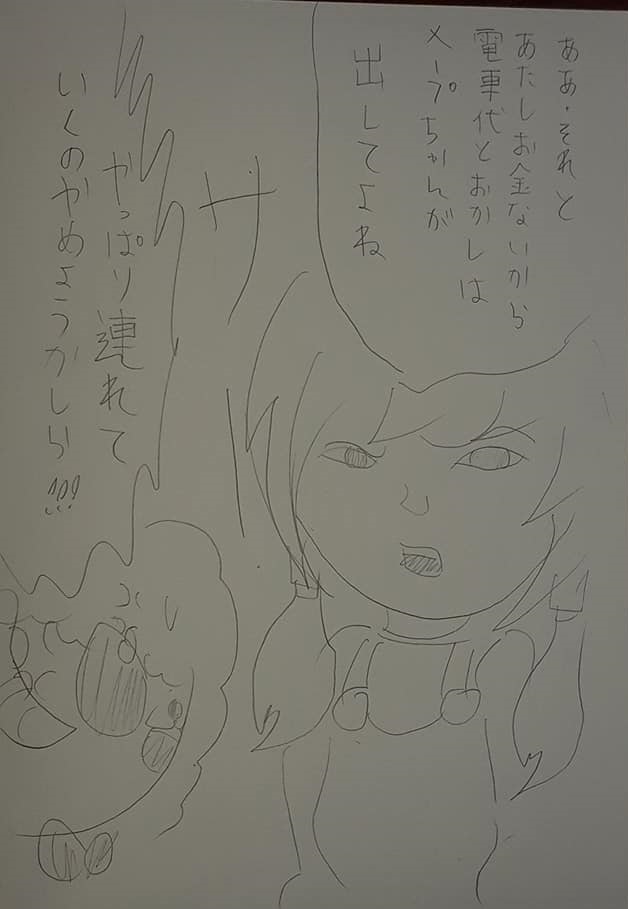 ああ・それと
あたしお金ないから
電車代とおかしは
メープちゃんが
出してよね
サ
やっぱり連れて
いくのやめようかしら!!!